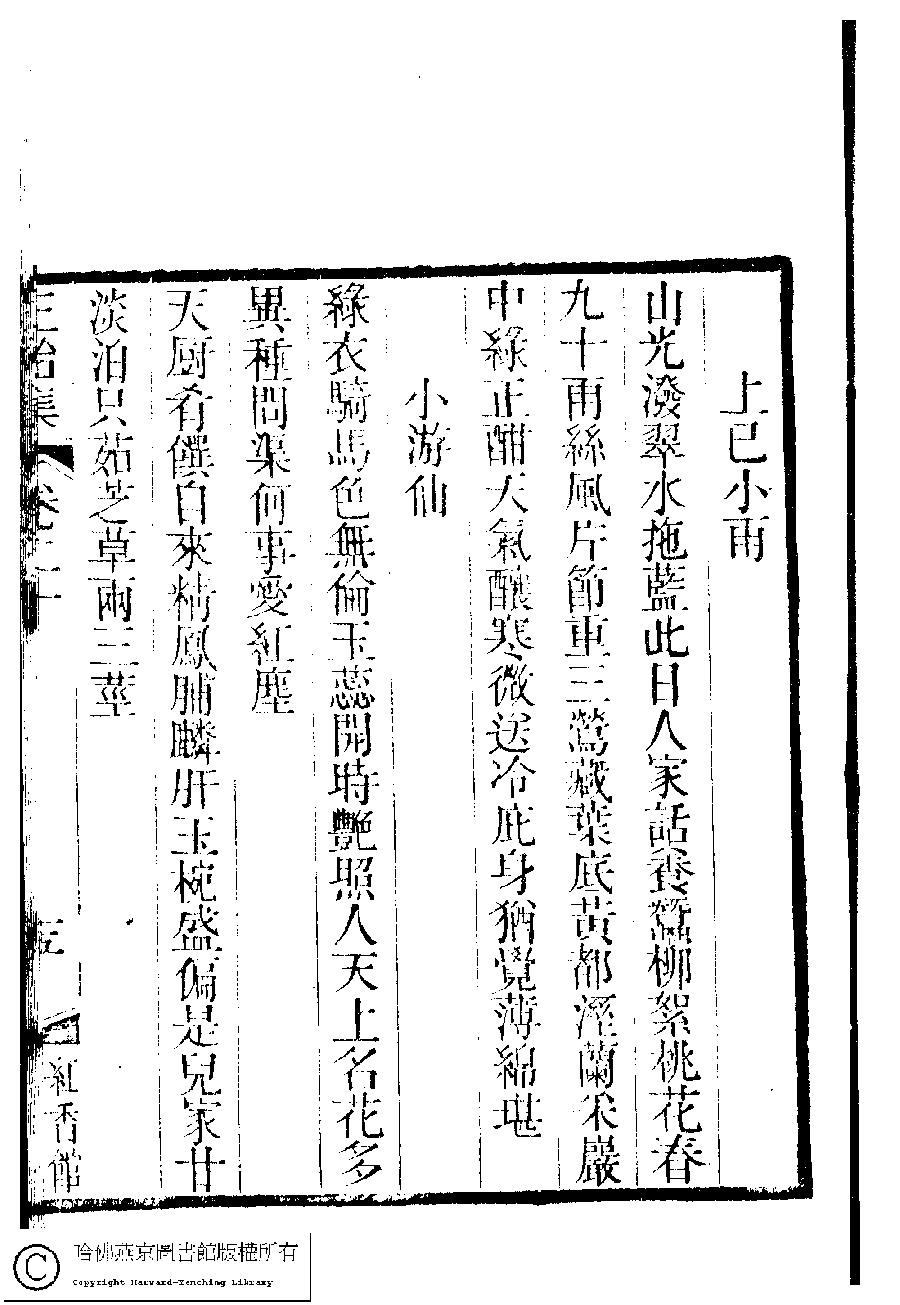 上巳小雨
山光潑翠水拖藍此日人家話養蠶柳絮桃花春
九十雨絲風片節重三鶯藏葉底黃都溼蘭采巖
中綠正酣天氣釀寒微送冷庇身猶覺薄綿堪
小游仙
綠衣騎馬色無倫玉蕊開時艷照人天上名花多
異種問渠何事愛紅塵
天厨肴饌自來精鳳脯麟肝玉椀盛偏是兒家甘
淡泊只茹芝草兩三莖
正始集 卷二十 五 紅香館
哈佛燕京圖書館版權所有
Copyright Harvard-Yenching Library